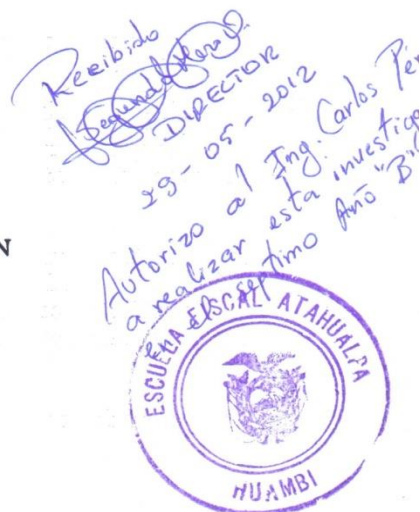 Recibido
Segundo
DIRECTOR
29-05-2012
Autorizo al Ing. Carlos Pér
a realizar esta investiga
En el séptimo Año "B"
N
ESCUELA FISCAL ATAHUALPA
HUAMBI